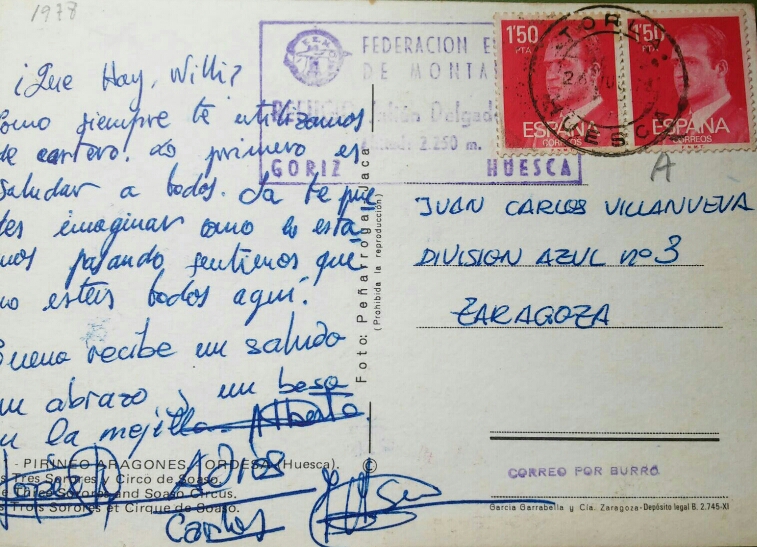 1978
¡Que Hay, Willi?
Como siempre te utilizamos
de cartero. Lo primero es
saludar a todos. Ya te pue
des imaginar como lo esta
mos pasando sentimos que
no esteis todos aqui.
Bueno recibe un saludo
un abrazo y un beso
en la mejilla. Alberto.
ADIOS
Carlos
- PIRINEO ARAGONES / ORDESA (Huesca).
Tres Sorores y Circo de Soaso.
Three Sorores and Soaso Circus.
Trois Sorores et Cirque de Soaso.
FEDERACION E
DE MONTA
REFUGIO Delgado
2.250 m.
GORIZ HUESCA
Foto: Peñarroya. Jaca
(Prohibida la reproducción)
©
1'50
PTA
ESPAÑA
CORREOS
1'50
PTA
ESPAÑA
CORREOS
TORLA
HUESCA
A
JUAN CARLOS VILLANUEVA
DIVISION AZUL nº 3
ZARAGOZA
CORREO POR BURRO
García Garrabella y Cía. Zaragoza-Depósito legal B. 2.745-XI